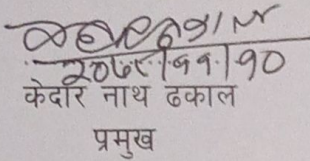 २०७९।११।१०
केदार नाथ ढकाल
प्रमुख